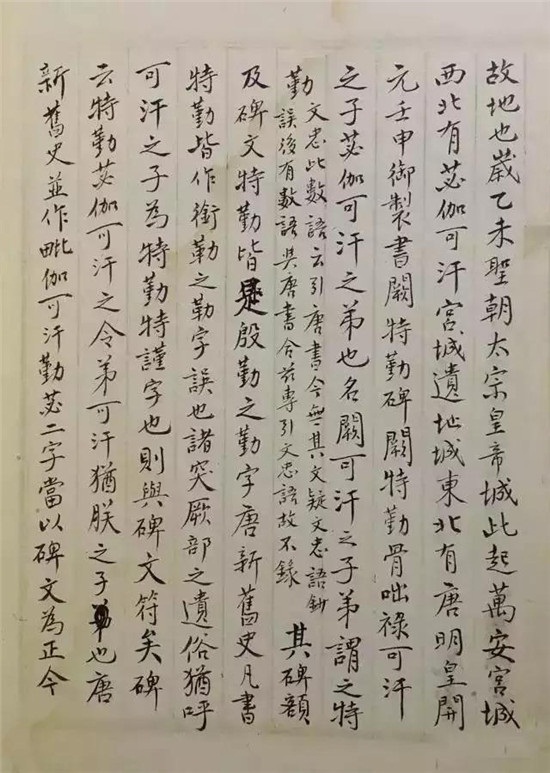 故地也歲乙未聖朝太宗皇帝城此起萬安宮城
西北有苾伽可汗宮城遺地城東北有唐明皇開
元壬申御製書闕特勤碑闕特勤骨咄祿可汗
之子苾伽可汗之弟也名闕可汗之子弟謂之特
勤
文忠此數語云引唐書今無其文疑文忠語鈔
誤後有數語與唐書合茲專引文忠語故不錄
其碑額
及碑文特勤皆是殷勤之勤字唐新舊史凡書
特勤皆作銜勒之勒字誤也諸突厥部之遺俗猶呼
可汗之子為特勤特謹字也則與碑文符矣碑
云特勤苾伽可汗之令弟可汗猶朕之子也唐
新舊史並作毗伽可汗勤苾二字當以碑文為正今